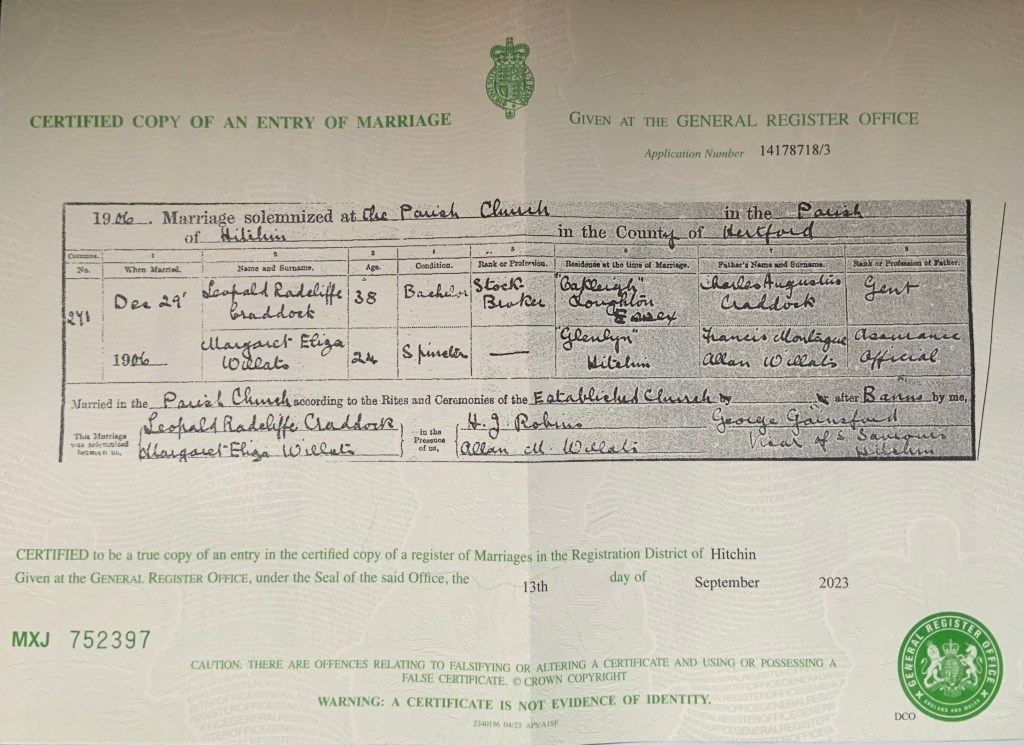 CERTIFIED COPY OF AN ENTRY OF MARRIAGE
GIVEN AT THE GENERAL REGISTER OFFICE
Application Number 14178718/3
1906. Marriage solemnized at the Parish Church in the Parish
of Hitchin in the County of Hertford
Columns. 1 2 3 4 5 6 7 8
No. When Married. Name and Surname. Age. Condition. Rank or Profession. Residence at the time of Marriage. Father's Name and Surname. Rank or Profession of Father.
271 Dec 29 1906
Leopold Radcliffe Craddock 38 Bachelor Stock Broker "Oakleigh" Loughton Essex Charles Augustus Craddock Gent
Margaret Eliza Willats 24 Spinster — "Glenlyn" Hitchin Francis Montague Allan Willats Assurance Official
Married in the Parish Church according to the Rites and Ceremonies of the Established Church by or after Banns by me,
This Marriage was solemnized between us,
Leopold Radcliffe Craddock
Margaret Eliza Willats
in the Presence of us,
H. J. Robins
Allan M. Willats
George Gainsford
Vicar of S. Saviours
Hitchin
CERTIFIED to be a true copy of an entry in the certified copy of a register of Marriages in the Registration District of Hitchin
Given at the GENERAL REGISTER OFFICE, under the Seal of the said Office, the 13th day of September 2023
MXJ 752397
CAUTION: THERE ARE OFFENCES RELATING TO FALSIFYING OR ALTERING A CERTIFICATE AND USING OR POSSESSING A
FALSE CERTIFICATE. © CROWN COPYRIGHT
WARNING: A CERTIFICATE IS NOT EVIDENCE OF IDENTITY.
GENERAL REGISTER OFFICE
ENGLAND AND WALES
DCO